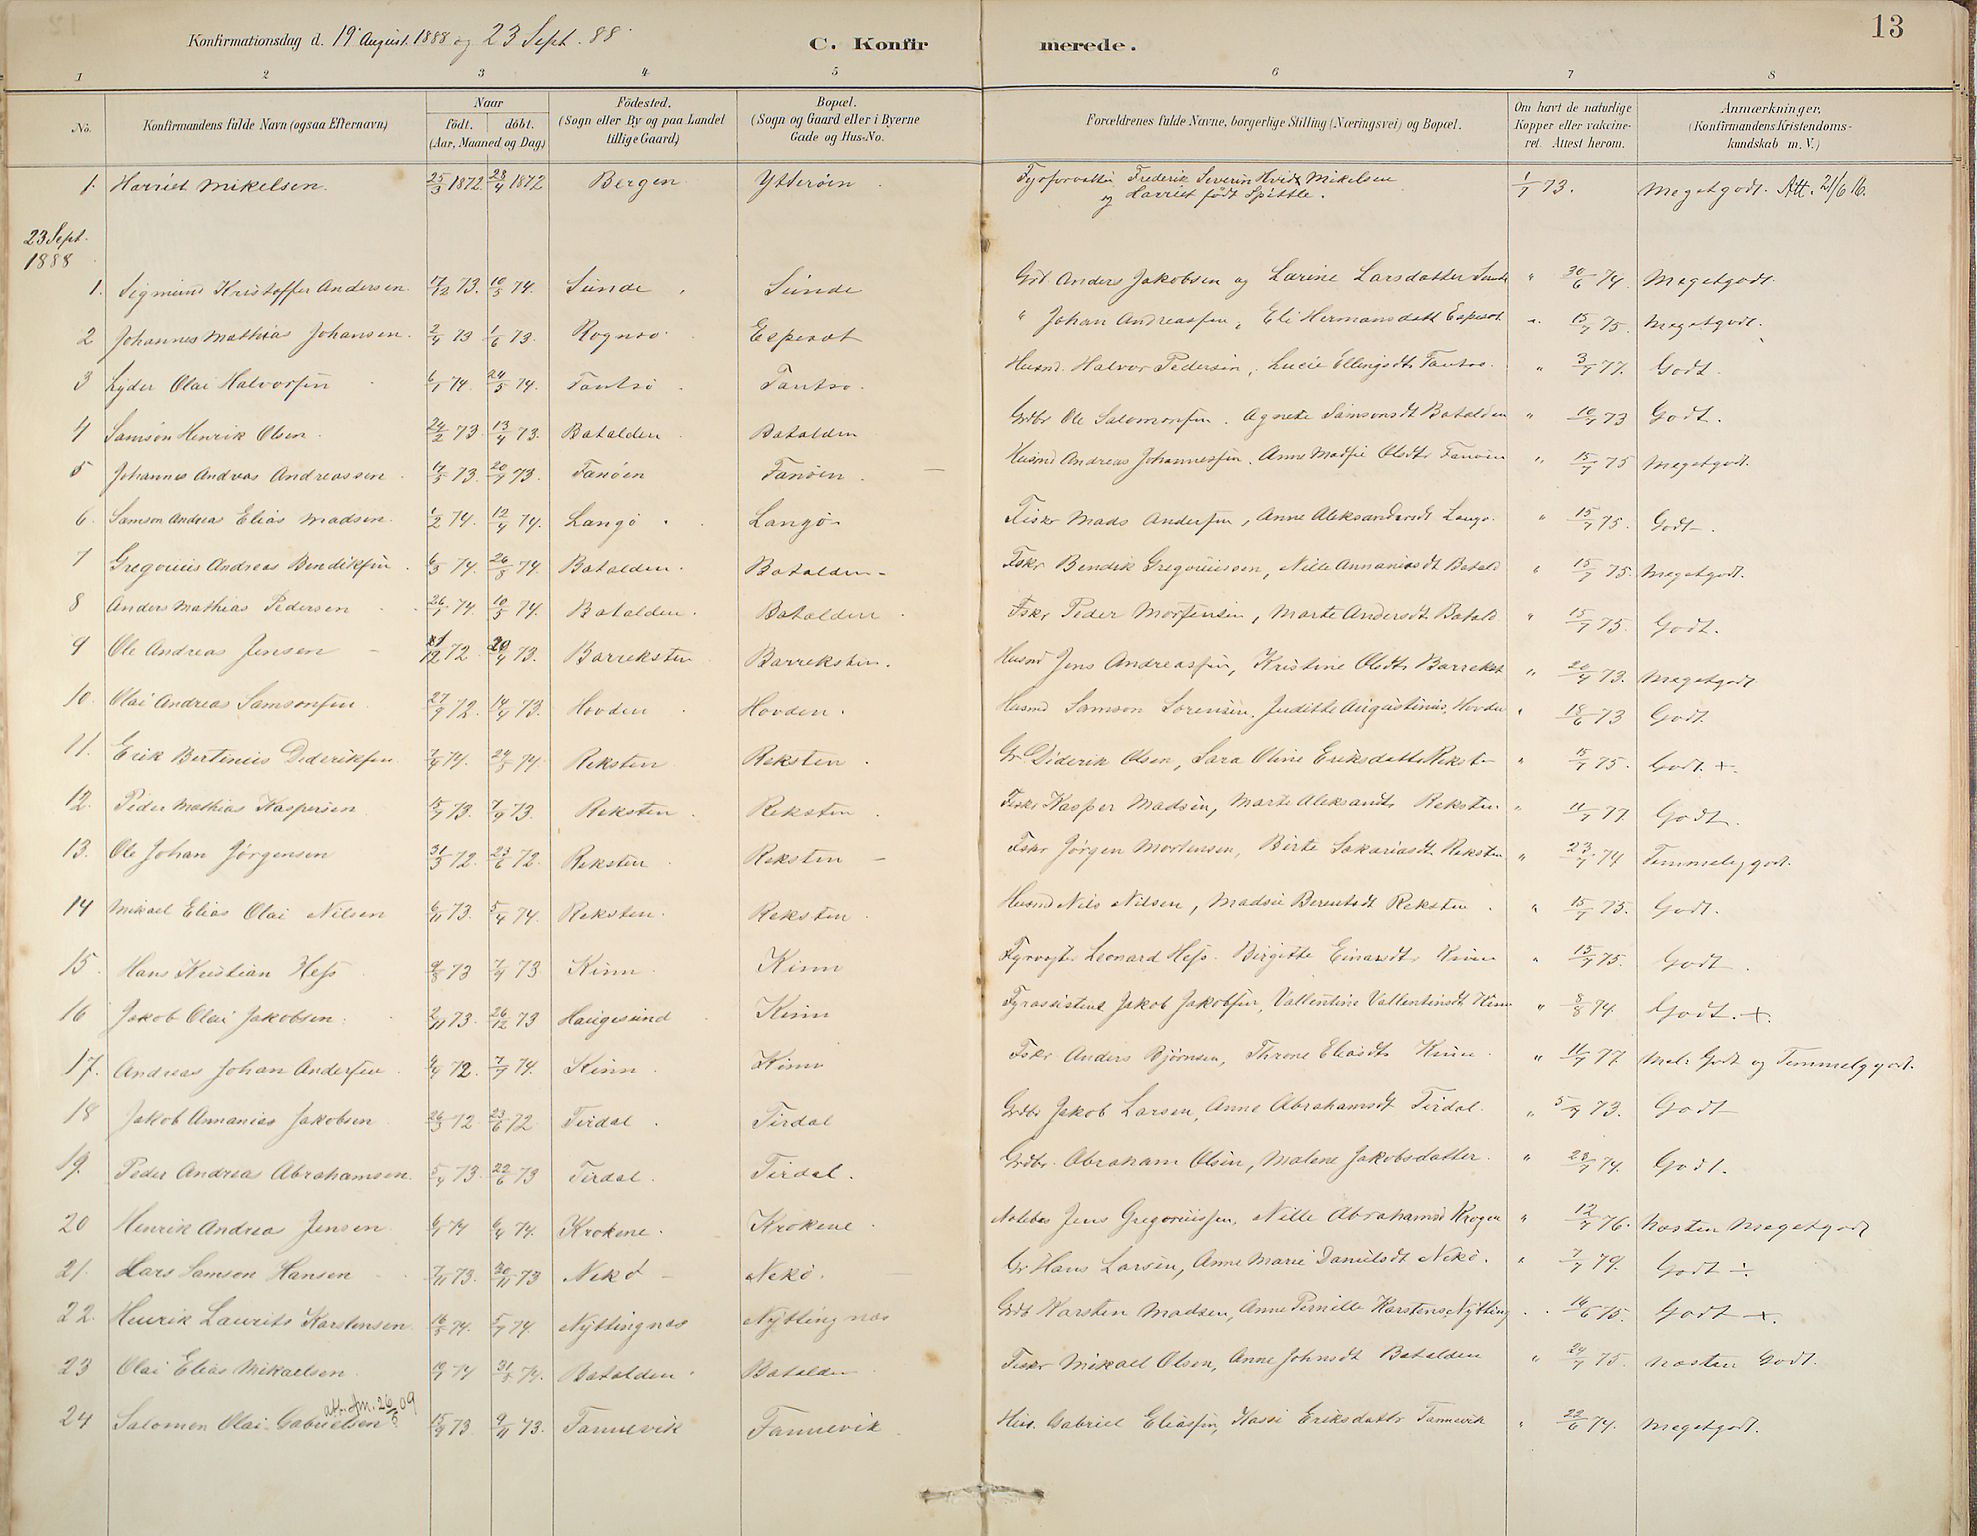 13
Konfirmationsdag d. 19 August. 1888 og 23 Sept. 88.
C. Konfirmerede.
1 2 3 4 5 6 7 8
No. Konfirmandens fulde Navn (ogsaa Efternavn) Naar födt. döbt. (Aar, Maaned og Dag) Födested. (Sogn eller By og paa Landet tillige Gaard) Bopæl. (Sogn og Gaard eller i Byerne Gade og Hus-No. Forældrenes fulde Navne, borgerlige Stilling (Næringsvei) og Bopæl. Om havt de naturlige Kopper eller vakcineret. Attest herom. Anmærkninger. (Konfirmandens Kristendomskundskab m. V.)
1. Harriet Mikelsen. 25/3 1872 28/4 1872 Bergen Ytterøen. Fyrforvalter Frederik Severin Hvidt Mikelsen og Harriet født Spittle. 1/7 73. Megetgodt. Att. 21/6 16.
23 Sept. 1888
1. Sigmund Kristoffer Andersen. 17/12 73. 10/5 74. Sunde Sunde Anders Jakobsen og Larine Larsdatter Sunde " 30/6 74. Megetgodt.
2 Johannes Mathias Johansen. 2/4 73 1/6 73. Rognø Espeset " Johan Andreassen, Eli Hermansdatt Espeset " 15/7 75. Megetgodt.
3 Lyder Olai Halvorsen 6/1 74. 24/5 74. Tansø Tansø. Husmd. Halvor Pedersen, Lucie Ellingsdtr " 3/7 77. Godt.
4 Samson Henrik Olsen. 24/2 73. 13/4 73. Batalden Batalden Grdbr Ole Salomonsen. Agnete Samsonsdt Batalden " 10/7 73 Godt.
5 Johannes Andreas Andreassen 17/5 73. 20/7 73. Fanöen Fanöen. Husmd Andreas Johannessen. Anne Madsdtr Fanöen " 15/7 75 Megetgodt.
6. Samson Andreas Elias Madsen. 1/2 74. 12/4 74. Langö. Langö. Fiskr Mads Andersen, Anne Aleksandersdt Langö. " 15/7 75. Godt.
7 Gregorius Andreas Bendiksen. 6/3 74. 26/5 74. Batalden. Batalden. Fskr Bendik Gregoriussen, Nille Annaniasdt Batald " 15/7 75 Megetgodt.
8 Anders Mathias Pedersen 26/1 74. 10/5 74. Batalden. Batalden Fskr Peder Mortensen, Marte Andersdt. Batald " 15/7 75. Godt.
9 Ole Andreas Jensen 21/12 72 20/4 73. Barreksten Barreksten. Husmd Jens Andreassen, Kristine Olsdtr Barrekst " 20/4 73. Megetgodt
10. Olai Andreas Samsonsen 27/9 72. 14/4 73. Hovden Hovden. Husmd Samson Sørensen. Judithe Augustinus. Hovden " 18/6 73 Godt.
11. Erik Bertinius Dideriksen 7/4 74. 24/5 74. Reksten Reksten. Gr. Diderik Olsen, Sara Oline Eriksdatter Rekst " 15/7 75. Godt. +.
12. Peder Mathias Kaspersen 15/7 73. 7/9 73. Reksten Reksten. Fiskr Kasper Madsen, Marte Aleksandtr Reksten " 11/7 77 Godt.
13. Ole Johan Jørgensen 31/3 72. 23/6 72. Reksten Reksten Fskr Jørgen Mortensen, Birte Sakariasdt. Reksten " 23/7 74 Temmelig godt.
14 Mikael Elias Olai Nilsen 6/11 73. 5/4 74. Reksten. Reksten. Husmd Nils Nilsen, Madsie Berentsdt Reksten. " 15/7 75. Godt.
15. Hans Kristian Hess 9/8 73 7/9 73. Kinn. Kinn Fyrvogtr. Leonard Hess. Birgitte Einarsdtr Kinn " 15/7 75. Godt.
16 Jakob Olai Jakobsen. 2/11 73. 26/12 73 Haugesund Kinn Fyrassistent Jakob Jakobsen, Vallentine Vallentinsdt Kinn " 8/8 74. Godt. +.
17. Andreas Johan Andersen 4/4 72. 7/7 74. Kinn. Kinn Fskr Anders Bjørnsen, Throne Eliasdtr Kinn. " 11/7 77. Mel. Godt og Temmelg godt.
18 Jakob Annanias Jakobsen 26/3 72 23/6 72 Tirdal. Tirdal Grdbr Jakob Larsen, Anne Abrahamsdt Tirdal. " 5/7 73. Godt
19. Peder Andreas Abrahamsen. 5/4 73. 22/6 73 Tirdal. Tirdal. Grdbr. Abraham Olsen, Malene Jakobsdatter. " 28/7 74. Godt.
20 Henrik Andreas Jensen 6/1 74 6/4 74. Krokene. Krokene. Jens Gregoriussen, Nille Abrahamsd Krogen " 12/7 76. Næsten Megetgodt
21. Lars Samson Hansen 7/11 73. 30/11 73 Nekö Nekö. Gr Hans Larsen, Anne Marie Danielsdt Nekö. " 7/7 79. Godt ÷.
22. Henrik Laurits Karstensen. 16/3 74. 5/7 74. Nyttingnæs Nyttingnæs Grdb Karsten Madsen, Anne Pernille Karstens. Nytting " 14/6 75. Godt +.
23 Olai Elias Mikaelsen. 19/4 74 31/5 74. Batalden. Batalden Fiskr Mikael Olsen, Anne Johnsdt Batalden " 24/7 75. Næsten Godt.
24 Salomon Olai Gabrielsen 15/9 73. 9/11 73. Tannevik Tannevik Hus. Gabriel Eliassen, Kassi Eriksdatter Tannevik " 22/6 74. Megetgodt.